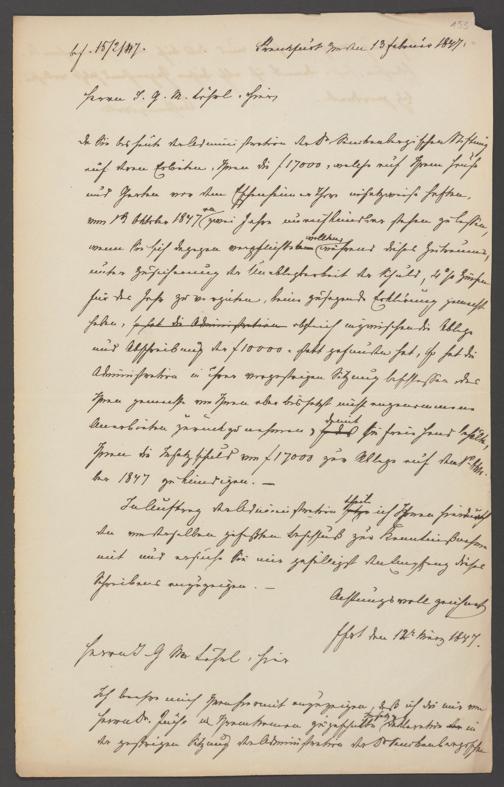 193
bf. 15/2/47.
Frankfurt den 13 Februar 1847.
Herrn I. G. M. Löhrl. Hier
Da Sie bis heute der Administration der Dr Senckenbergischen Stiftung
auf deren Erbieten, Ihnen die f 17000, welche auf Ihrem Hause
und Garten vor dem Eschenheimer Thor insatzweise haften,
vom 1 Oktober 1847 an zwei Jahre unaufkündbar stehen zu lassen,
wenn Sie sich dagegen verpflichten wollten während dieses Zeitraums,
unter Zusicherung der Unablegbarkeit der Schuld, 4 % Zinsen
für das Jahr zu vergüten, keine zusagende Erklärung gemacht
haben, so hat die Administration obgleich inzwischen die Ablage
und Abschreibung der f 10000. statt gefunden hat, so hat die
Administration in ihrer vorgestrigen Sitzung beschlossen, das
Ihnen gemachte von Ihnen aber bis jetzt nicht angenommene
Anerbieten zurückzunehmen, damit sie freie Hand behält,
Ihnen die Insatzschuld von f 17000 zur Ablage auf den
1847 zu kündigen. —
Im Auftrag der Administration theile ich Ihnen hierdurch
den von derselben gefaßten Beschluß zur Kenntnißnahme
mit und ersuche Sie mir gefälligst den Empfang dieses
Schreibens anzuzeigen. —
Achtungsvoll zeichnet
Ffrt den 12t März 1847.
Herrn I G M Löhrl. Hier
Ich beehre mich Ihnen hiermit anzuzeigen, daß ich die mir von
Herrn Dr. in Ihrem Namen zugestellte Declaration in
der gestrigen Sitzung der Administration der Dr Senckenbergischen